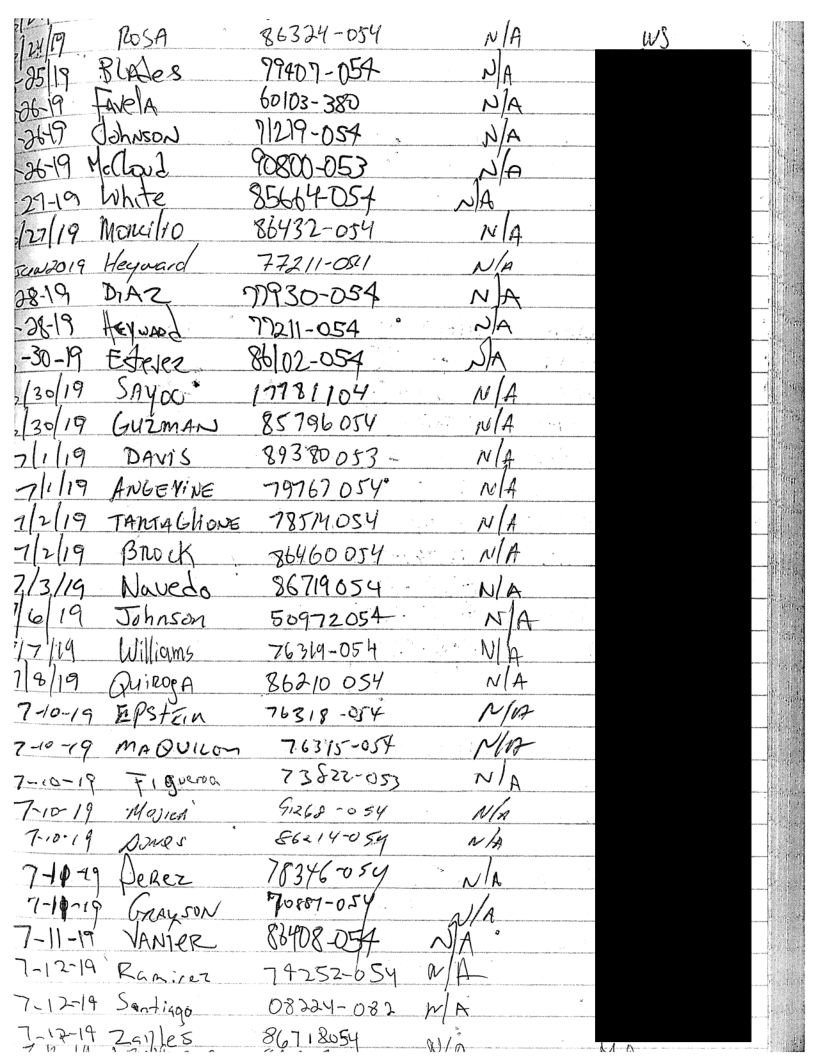 /24/19 ROSA 86324-054 N/A WS
-25/19 BLAdes 79407-054 N/A
-26-19 FAvelA 60103-380 N/A
-26-19 JohNSON 71219-054 N/A
-26-19 McCloud 90800-053 N/A
27-19 White 85664-054 N/A
/27/19 86432-054 N/A
Jun2019 Heyward 77211-051 N/A
28-19 DiAZ 77930-054 N/A
-28-19 HEYWARD 77211-054 N/A
-30-19 Estevez 86102-054 N/A
/30/19 SAYOC 17781104 N/A
/30/19 GUZMAN 85796054 N/A
7/1/19 DAViS 89380053 - N/A
7/1/19 ANGEVINE 79767054 N/A
7/2/19 TARTAGLIONE 78514054 N/A
7/2/19 BROCK 86460054 N/A
7/3/19 Navedo 86719054 N/A
/6/19 Johnson 50972054 N/A
/7/19 Williams 76319-054 N/A
7/8/19 QuirogA 86210 054 N/A
7-10-19 EPStEin 76318-054 N/A
7-10-19 MAQUILON 76315-054 N/A
7-10-19 Figueroa 73822-053 N/A
7-10-19 Mojica 91268-054 N/A
7-10-19 86214-054 N/A
7-10-19 PeRez 78346-054 N/A
7-10-19 GRAYSON 70887-054 N/A
7-11-19 VANieR 86408-054 N/A
7-12-19 Ramirez 79252-054 N/A
7-12-19 Santiago 08224-082 N/A
7-12-19 86718054 N/A